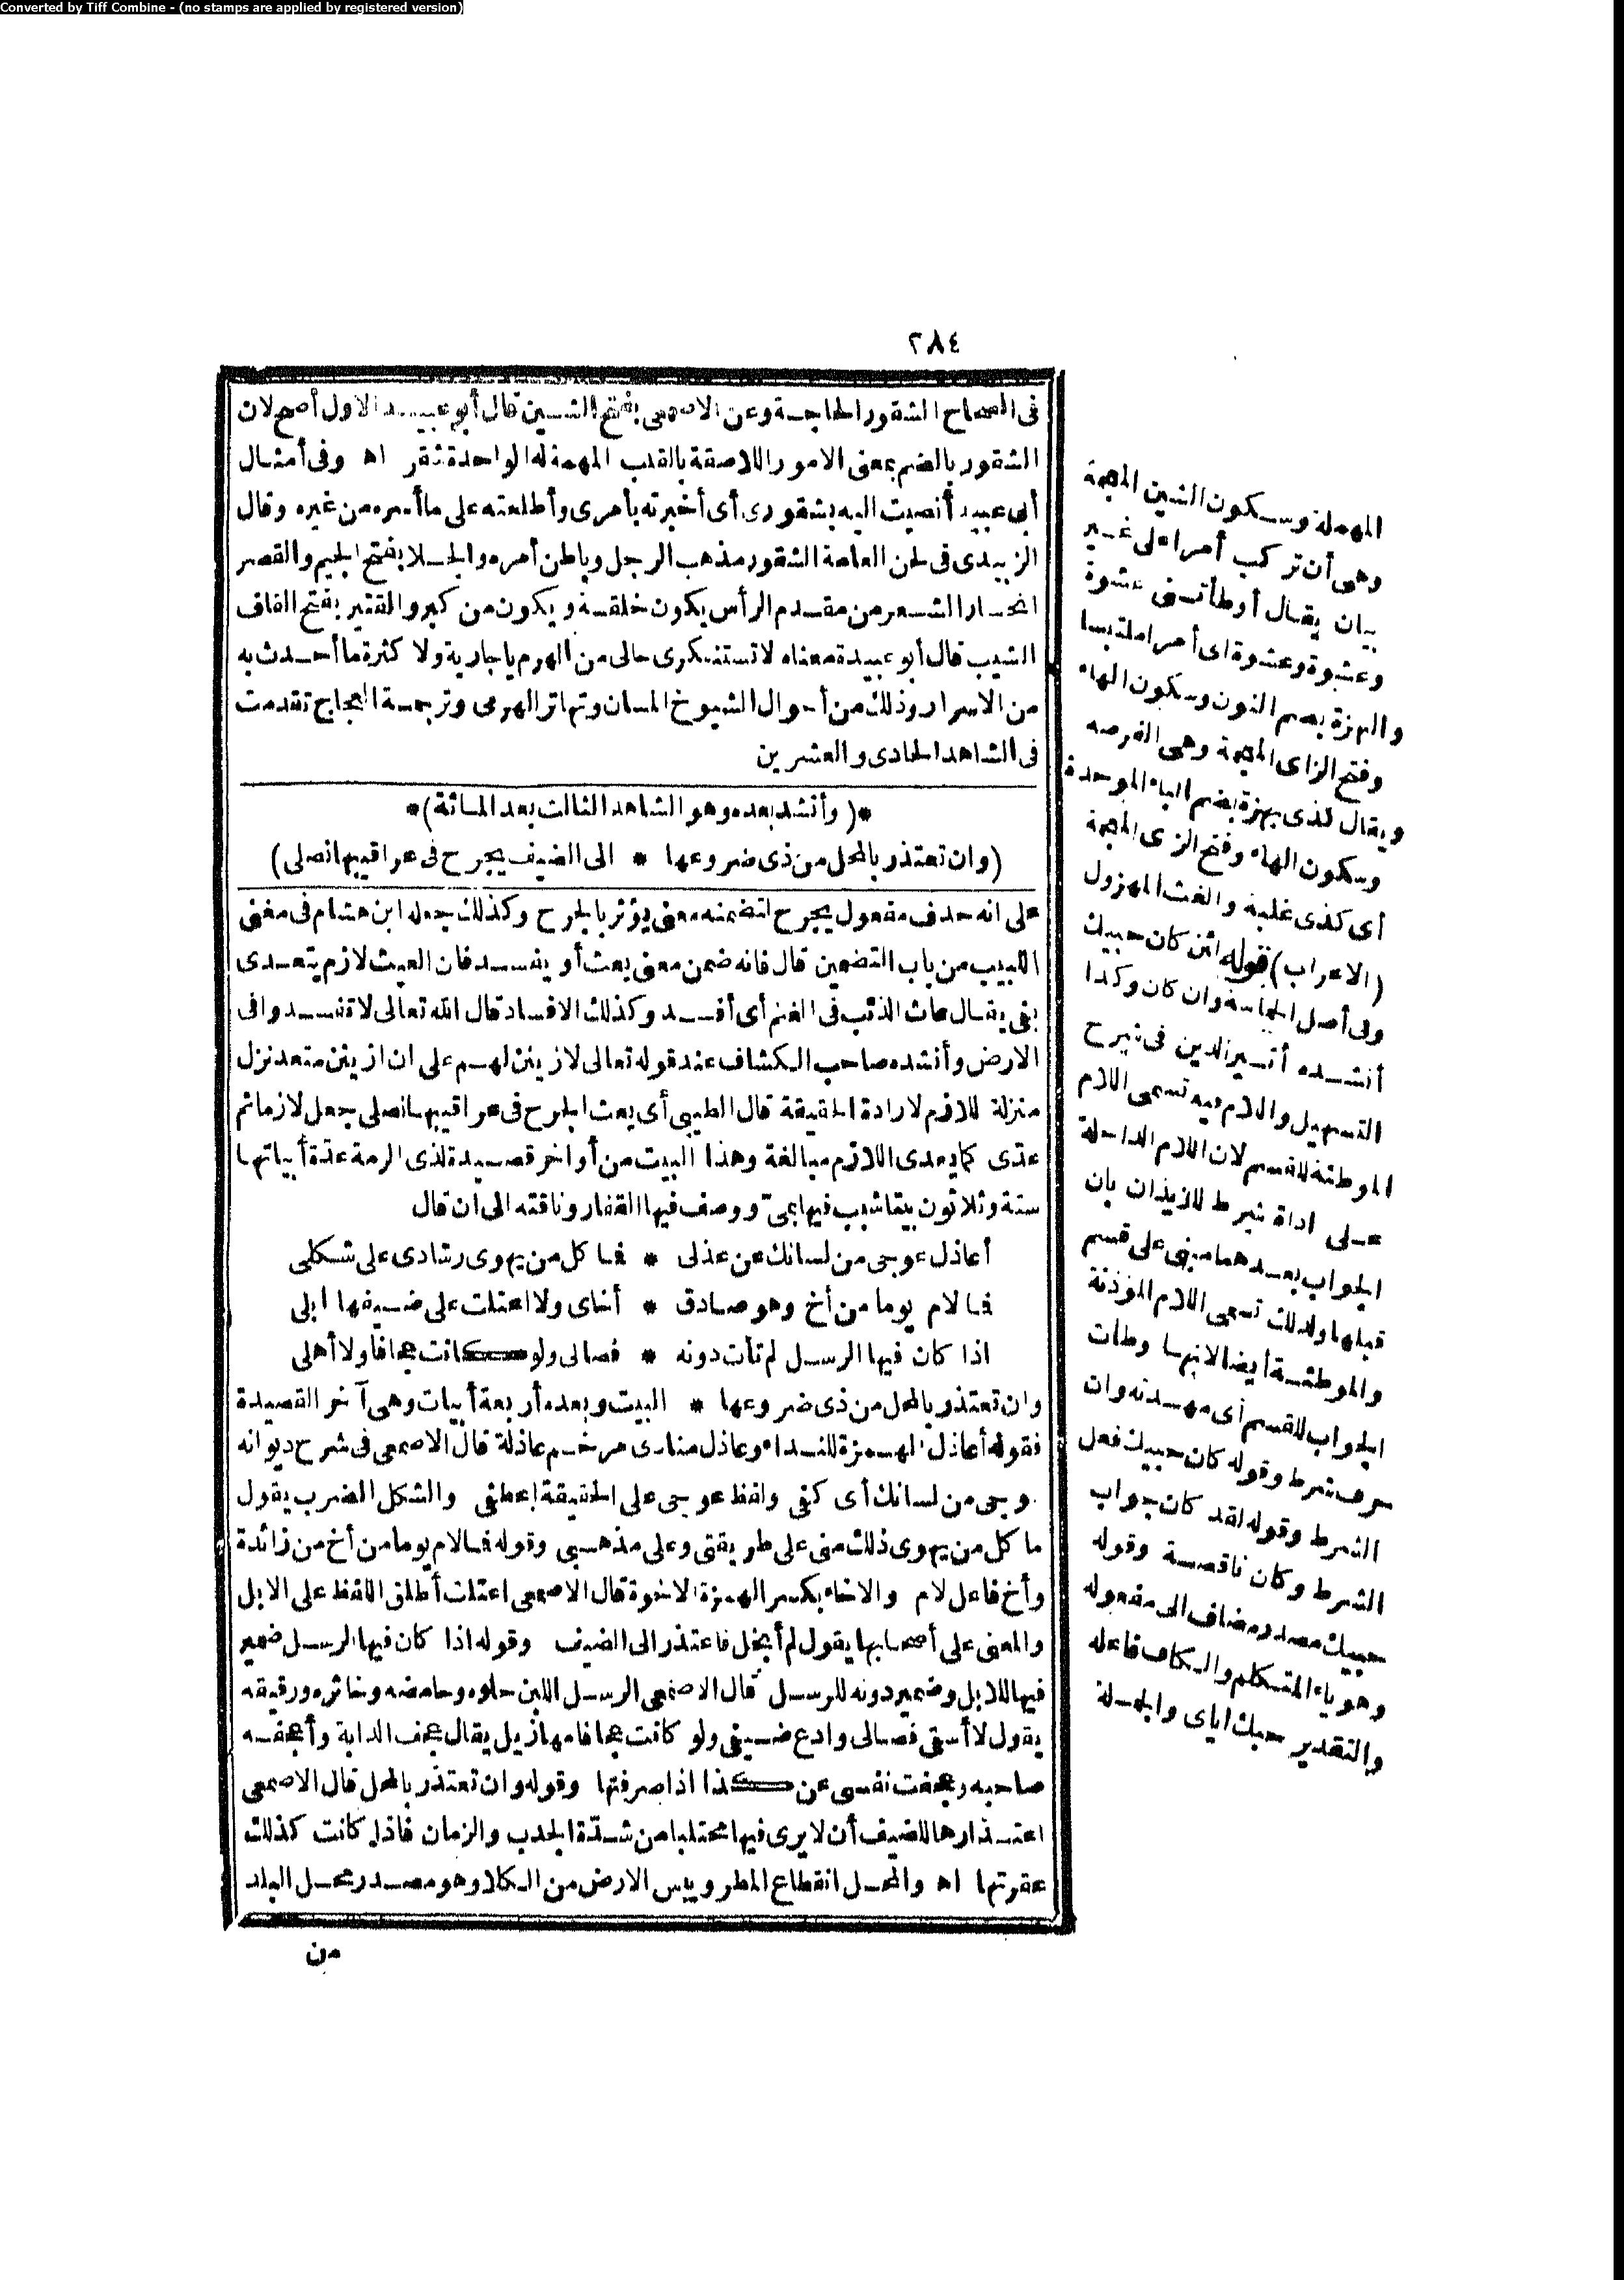 Converted by Tiff Combine - (no stamps are applied by registered version)
٢٨٤
فى الصحاح الشقور الحاجة وعن الاصمعى بفتح الشين قال أبو عبيد الاول أصح لان
الشقور بالضم بمعنى الامور اللاصقة بالقلب المهمة له الواحدة شقر اه وفى أمثال
أبى عبيد أفضيت اليه بشقورى أى أخبرته بأمرى وأطلعته على ما أسره من غيره وقال
الزبيدى فى لحن العامة الشقور مذهب الرجل وباطن أمره والجلا بفتح الجيم والقصر
انحسار الشعر من مقدم الرأس يكون خلقة ويكون من كبر والقتير بفتح القاف
الشيب قال أبو عبيدة معناه لا تستنكرى حالى من الهرم يا جارية ولا كثرة ما أحدث به
من الاسرار وذلك من أحوال الشيوخ المسان وتهاتر الهرمى وترجمة العجاج تقدمت
فى الشاهد الحادى والعشرين
*(وأنشد بعده وهو الشاهد الثالث بعد المائة)*
(وان تعتذر بالمحل من ذى ضروعها * الى الضيف يجرح فى عراقيبها نصلى)
على انه حذف مفعول يجرح لتضمنه معنى يؤثر بالجرح وكذلك جعله ابن هشام فى مغنى
اللبيب من باب التضمين قال فانه ضمن معنى يعث أو يفسد فان العيث لازم يتعدى
بفى يقال عاث الذئب فى الغنم أى أفسد وكذلك الافساد قال الله تعالى لا تفسدوا فى
الارض وأنشده صاحب الكشاف عند قوله تعالى لازينن لهم على ان ازينن متعد نزل
منزلة اللازم لارادة الحقيقة قال الطيبى أى يعث الجرح فى عراقيبها نصلى جعل لازما ثم
عدّى كما يعدى اللازم مبالغة وهذا البيت من أواخر قصيدة لذى الرمة عدّة أبياتها
ستة وثلاثون بيتا شبب فيها بمىّ ووصف فيها القفار وناقته الى ان قال
أعاذل عوجى من لسانك عن عذلى * فما كل من يهوى رشادى على شكلى
فما لام يوما من أخ وهو صادق * أخاى ولا اعتلت على ضيفها ابلى
اذا كان فيها الرسل لم تأت دونه * فصالى ولو كانت عجافا ولا أهلى
وان تعتذر بالمحل من ذى ضروعها * البيت وبعده أربعة أبيات وهى آخر القصيدة
فقوله أعاذل الهمزة للنداء وعاذل منادى مرخم عاذلة قال الاصمعى فى شرح ديوانه
عوجى من لسانك أى كفى ولفظ عوجى على الحقيقة اعطفى والشكل الضرب يقول
ما كل من يهوى ذلك منى على طريقتى وعلى مذهبى وقوله فما لام يوما من أخ من زائدة
وأخ فاعل لام والاخاء بكسر الهمزة الاخوة قال الاصمعى اعتلت أطلق اللفظ على الابل
والمعنى على أصحابها يقول لم أبخل فاعتذر الى الضيف وقوله اذا كان فيها الرسل ضمير
فيها للابل وضمير دونه للرسل قال الاصمعى الرسل اللبن حلوه وحامضه وخاثره ورقيقه
يقول لا أسقى فصالى وادع ضيفى ولو كانت عجافا مهازيل يقال عجف الدابة وأعجفه
صاحبه وعجفت نفسى عن كذا اذا صرفتها وقوله وان تعتذر بالمحل قال الاصمعى
اعتذارها للضيف أن لا يرى فيها محتلبا من شدّة الجدب والزمان فاذا كانت كذلك
عقرتها اه والمحل انقطاع المطر ويبس الارض من الكلا وهو مصدر محل البلد
من
المهملة وسكون الشين المعجمة
وهى أن تركب أمرا على غير
بيان يقال أوطأتنى عشوة
وعشوة وعشوة اى أمرا ملتبسا
والنهزة بضم النون وسكون الهاء
وفتح الزاى المعجمة وهى الفرصه
ويقال لذى بهزة بضم الباء الموحدة
وسكون الهاء وفتح الزى المعجمة
أى كذى غلبة والغث المهزول
(الاعراب) قوله لئن كان حبيك
وفى أصل الحماسة وان كان وكذا
أنشده أثير الدين فى شرح
التسهيل واللام فيه تسمى اللام
الموطئة للقسم لان اللام الداخلة
على اداة شرط للايذان بان
الجواب بعدها مبنى على قسم
قبلها ولذلك تسمى اللام المؤذنة
والموطئة أيضا لانها وطأت
الجواب للقسم أى مهدته وان
حرف شرط وقوله كان حبيك فعل
الشرط وقوله لقد كان جواب
الشرط وكان ناقصة وقوله
حبيك مصدر مضاف الى مفعوله
وهو ياء المتكلم والكاف فاعله
والتقدير حبك اياى والجملة